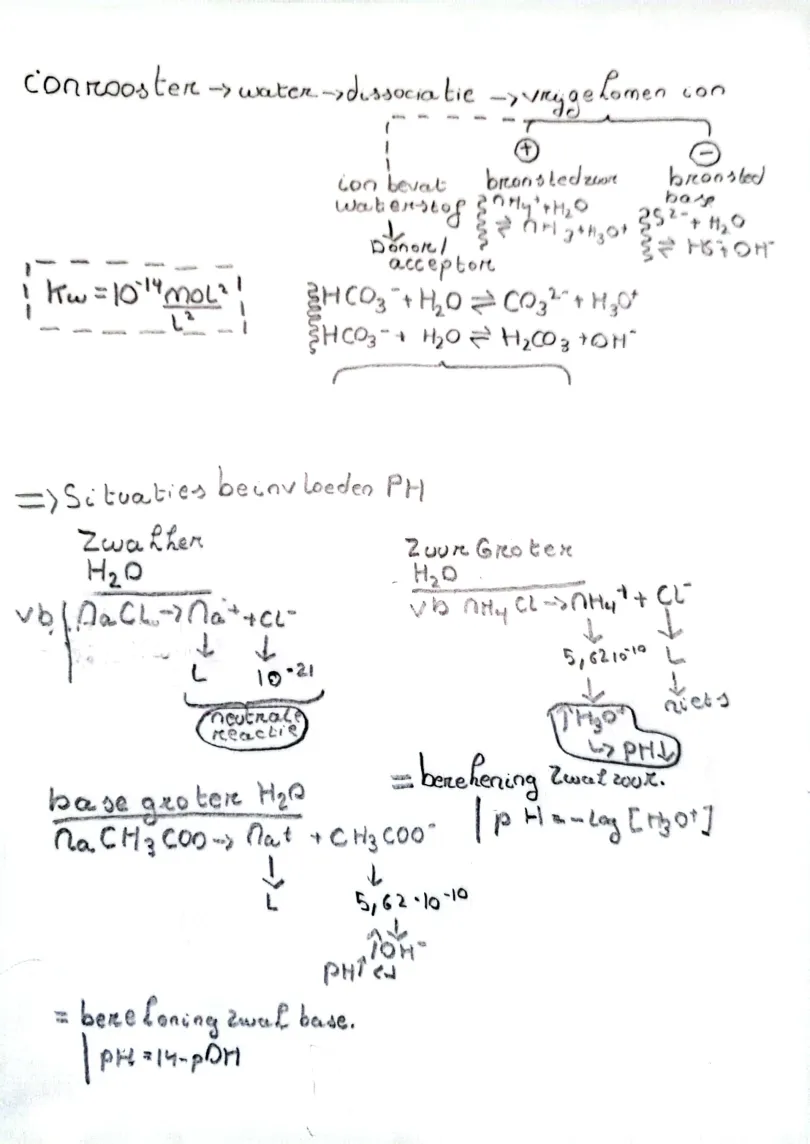 ionrooster → water → dissociatie → vrijgekomen ion
⊕ ⊖
ion bevat
waterstof
↓
Donor /
acceptor
bronsted zuur
NH4⁺ + H2O
⇌ NH3 + H3O⁺
bronsted
base
S²⁻ + H2O
⇌ HS⁻ + OH⁻
Kw = 10⁻¹⁴ mol²/L²
HCO3⁻ + H2O ⇌ CO3²⁻ + H3O⁺
HCO3⁻ + H2O ⇌ H2CO3 + OH⁻
=> Situaties beinvloeden PH
Zwakker
H2O
vb NaCl → Na⁺ + Cl⁻
↓ ↓
L 10⁻²¹
neutrale
reactie
Zuur Groter
H2O
vb NH4Cl → NH4⁺ + Cl⁻
↓ ↓
5,62 10⁻¹⁰ L
↓ ↓
↑H3O⁺ niets
↳ PH↓
= berekening Zwak zuur.
pH = -log [H3O⁺]
base groter H2O
NaCH3COO → Na⁺ + CH3COO⁻
↓ ↓
L 5,62·10⁻¹⁰
↓
↑OH⁻
PH↑ ↵
= berekoning zwak base.
pH = 14-pOH